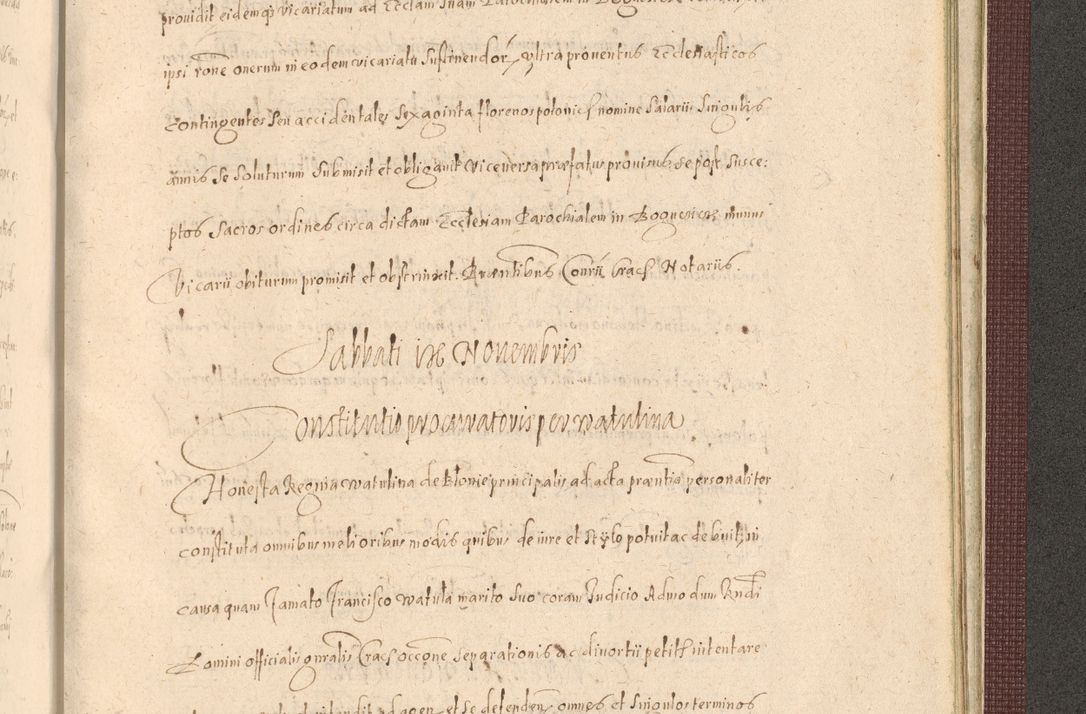 providit eidemqz vicariatum ad Ecclam suam Parochialem in
ipsi rone onerum in eodem vicariatu sustinendor, ultra proventus Ecclesiasticos
contingentes seu accidentales sexaginta florenos polonicl nomine salarii singulis
annis se soluturum submisit et obligavit viceversa praefatus provisus se post susce:
ptos sacros ordines circa dictam Ecclesiam Parochialem in munus
Vicarii obiturum promisit et obstrinxit. Praentibus Conrii Crac. Notariis.
Sabbati Novembris
Constitutio procuratoris per watulina
Honesta Regina watulina de Blonie principalis ad acta praentia personaliter
constituta omnibus melioribus modis quibus de iure et stylo potuit ac debuit in
causa quam famato Francisco watula marito suo coram Judicio Admodum Rndi
Domini officialis gnralis Crac occone separationis ac divortii petit intentare
et se defenden omnes et singulos terminos